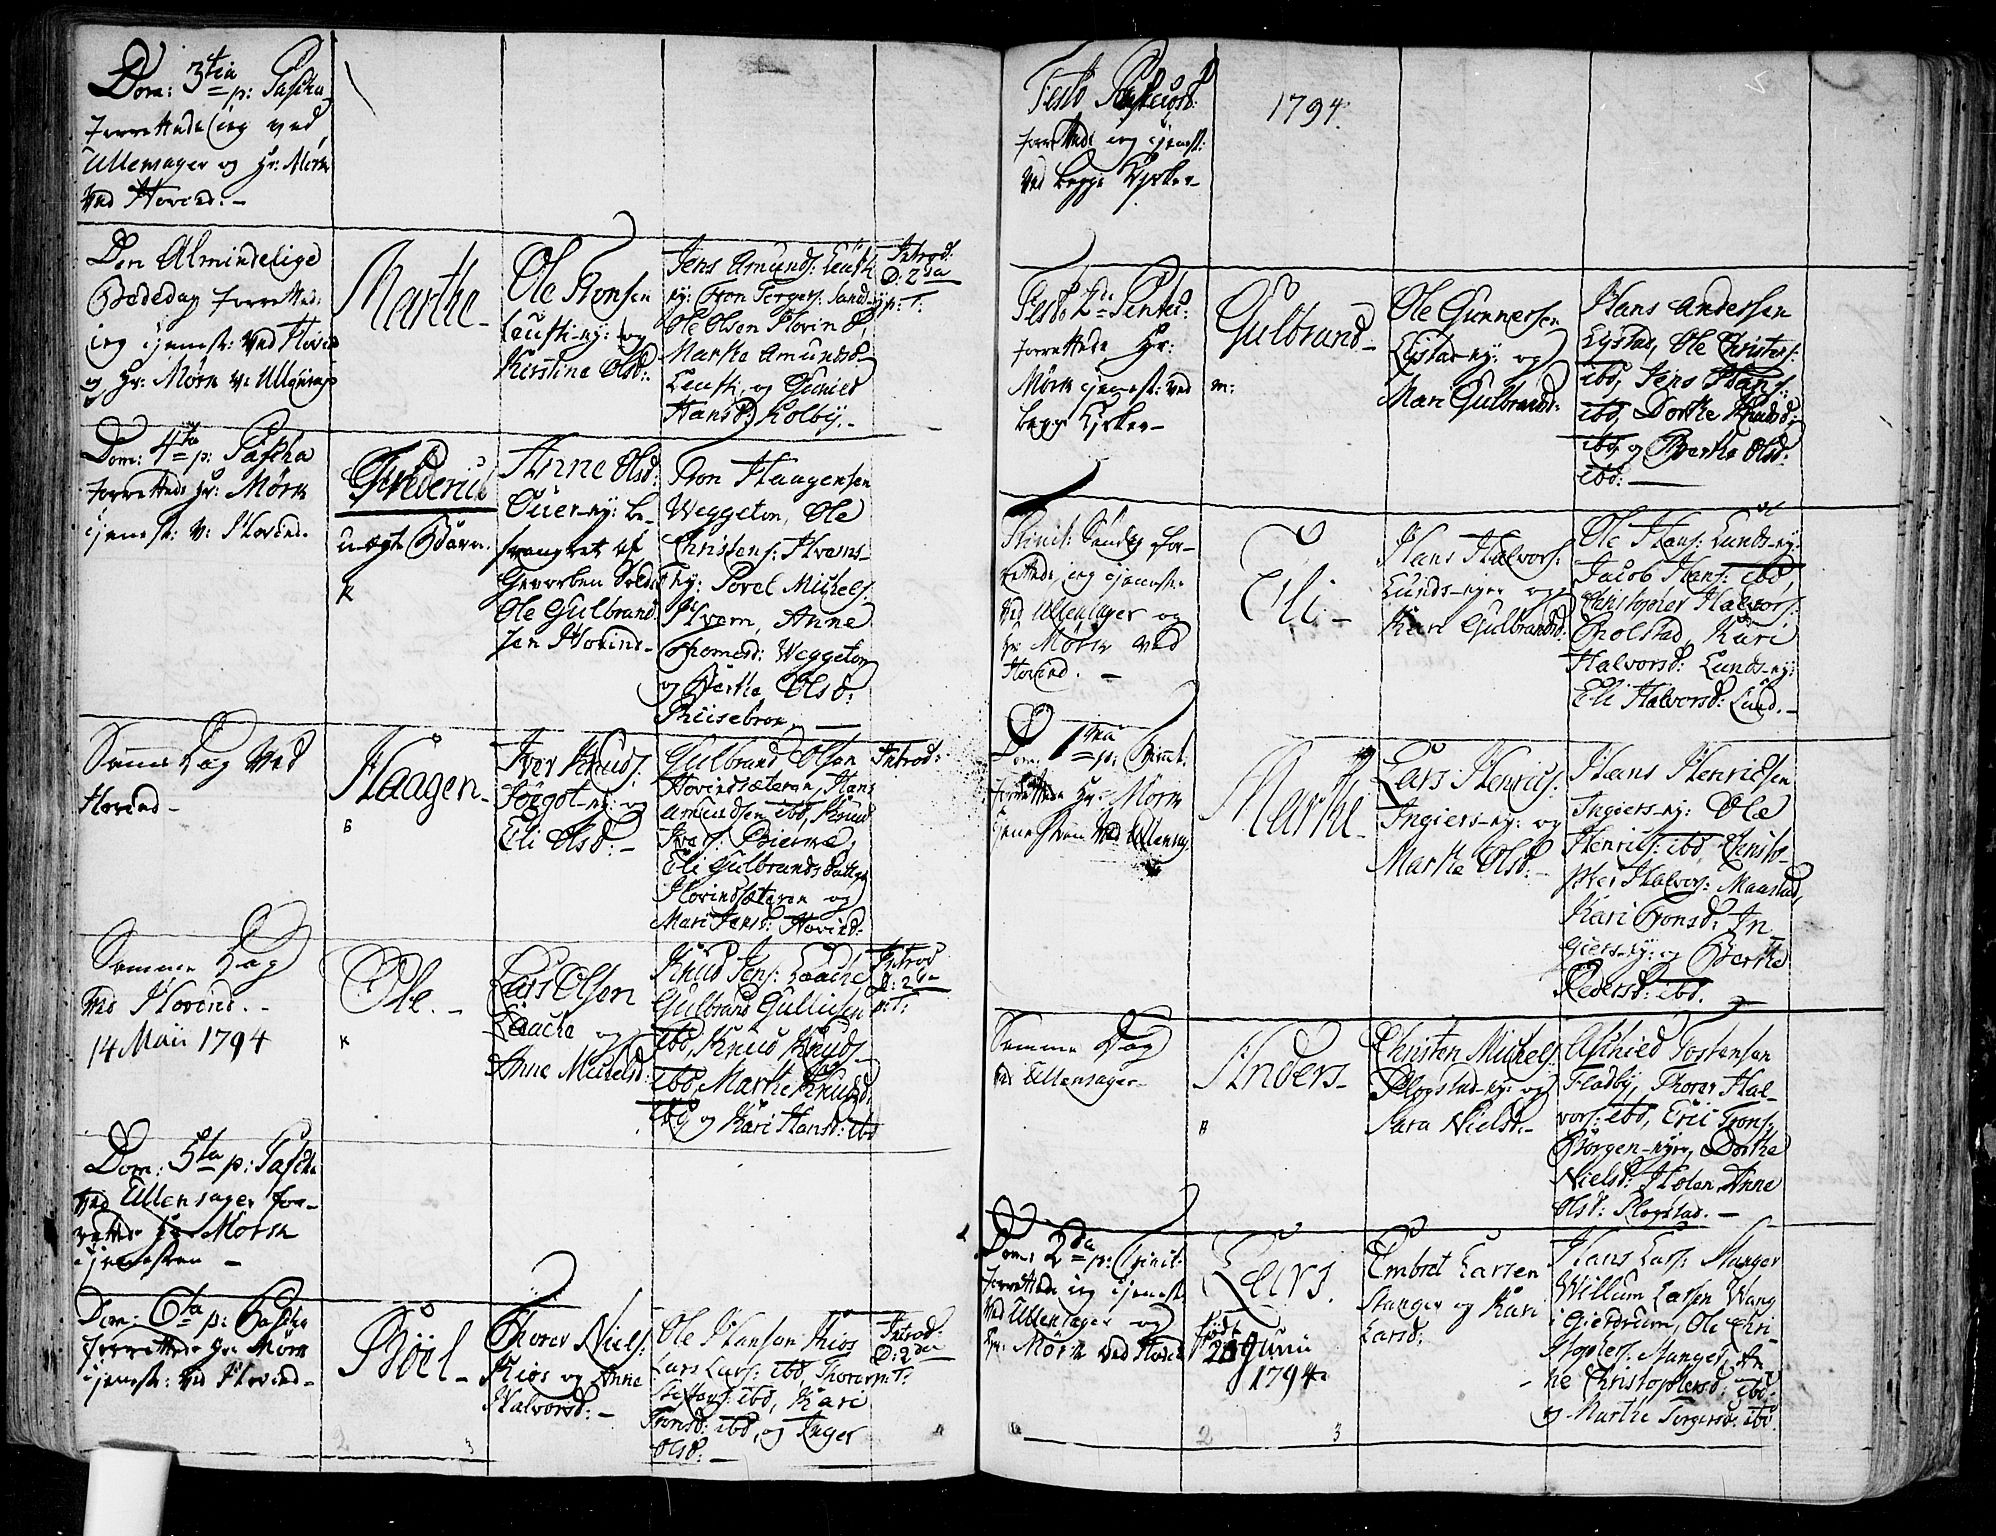 Dom: 3tia p: Pascha
forrettede jeg ved
Ullensager og Hr: Mørk
ved Hovind. –
Den Almindelige
Bededag forretted:
jeg tjenest: ved Hovind
og Hr: Mørk v: Ullensag:
Marthe –
Ole Tronsen
og
Kirstine Olsd:
Jens Amunds:
ey: Tron Torgers:
Ole Olsen Hovind
Marthe Amundsd:
og Gunild
Hansd: Kolby. –
Introd:
D: 2da
p: T:
Dom: 4ta p: Pascha
forrettede Hr: Mørk
tjenest: v: Hovind.
Frederich
uægte Barn.
K
Anne Olsd:
be-
svangret af
Gevorben Soldat
Ole Gulbrand
sen Hovind –
Tron Haagensen
Weggeton, Ole
Christens: Hvams-
ey: Povel Michels:
Hvam, Anne
Thomesd: Weggeton
og Berthe Olsd:
Riisebroe –
Samme Dag ved
Hovind –
Haagen –
B
Iver Knuds:
og
Eli Olsd: –
Gulbrand Olsen
Hovindsæteren, Hans
Amundsen ibd, Knud
Ivers: Bierne,
Eli Gulbrandsdatter
Hovindsæteren og
Mari Jensd: Hovind.
Introd:
Samme Dag
ved Hovind. –
14 Maii 1794
Ole. –
K
Lars Olsen
Laache og
Anne Michelsd:
Knud Jens: Laache
Gulbrand Gullichsen
ibd, Knud Knuds:
ibd, Marthe Knudsd:
ibd og Kari Hansd: ibd
Introd
D: 2da
p: T:
Dom: 5ta p: Pascha
ved Ullensager for-
rettede Hr Mørk
tjenesten –
Dom: 6ta p: Pascha
forrettede Hr: Mørk
tjenest: ved Hovind –
Böel –
Thorer Niels:
Rios og Anne
Halvorsd: –
Ole Hansen Riis
Lars Lars: ibd, Thorer
ibd, Kari
Tronsd: ibd, og Inger
Olsd: –
Introd:
D: 2da
p: T:
2
3
Festo
forrettede jeg tjenest:
ved begge Kirker –
1794.
Festo 2de Pentec:
forrettede Hr:
Mørk tjenest: ved
begge Kirker –
Gulbrand –
m:
Ole Gunnersen
Lystad-ey: og
Mari Gulbrandsd:
Hans Andersen
Lystad, Ole Christens:
ibd, Jens Hans:
ibd, Dorthe Knudsd:
ibd, og Berthe Olsd:
ibd: –
Trinit: Søndag for-
rettede jeg tjenest:
ved Ullensager og
Hr: Mørk ved
Hovind. –
Eli –
Hans Halvors:
Lunds-eyer og
Kari Gulbrandsd:
Ole Hans: Lunds-ey:
Jacob Hans: ibd
Christopher Halvors:
Kari
Halvorsd: Lunds-ey:
Eli Halvorsd: Lund. –
Dom: 1ma p: Trinit:
forrettede Hr: Mørk
tjenesten ved Ullensag:
Marthe –
Lars Henrics:
Ingiers-ey: og
Marthe Olsd: –
Hans Henricsen
Ingiers-ey: Ole
Henrics: ibd, Christo-
pher Halvors: Maastad,
Kari Tronsd: In
giers-ey: og Berthe
Pedersd: ibd.
Samme Dag
ved Ullensager –
Anders –
B
Christen Michels:
Plogstad-ey: og
Sara Nielsd: –
Tostensen
Fladby, Thorer Hal-
vors: ibd, Eric Trons:
Borgen-eyer, Dorthe
Nielsd: Holen, Anne
Olsd: Plogstad. –
Dom: 2da p: Trinit:
forrettede jeg tjenest:
ved Ullensager og
Hr: Mørk ved Hovind
Lars.
født
28 Junii
1794.
Embret Larsen
Stanger og Kari
Larsd:
Hans Lars: Stanger
Willum Larsen Wang
i Gierdrum, Ole Chri-
stophers: Stanger, An-
ne Christophersd: ibd
og Marthe Torgersd: ibd.
2
3